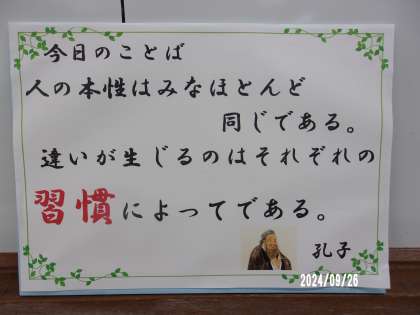 今日のことば
人の本性はみなほとんど
同じである。
違いが生じるのはそれぞれの
習慣によってである。
孔子
2024/09/26